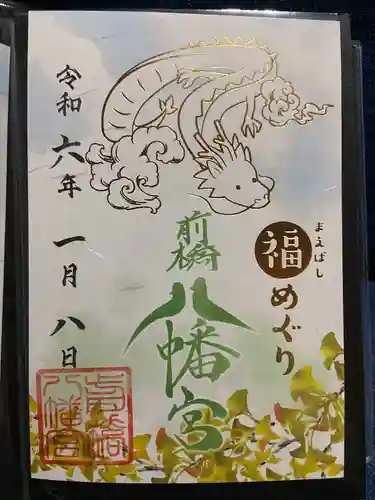 まえばし
福めぐり
前橋
八幡宮
令和六年一月八日
前橋
八幡宮